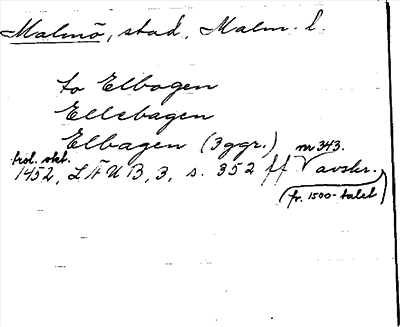 Malmö, stad, Malm. l.
to Elbogen
Ellebagen
Elbagen (3ggr.)
trol. okt. nr 343.
1452, LÄUB, 3, s. 352 ff avskr.
(fr. 1500-talet)